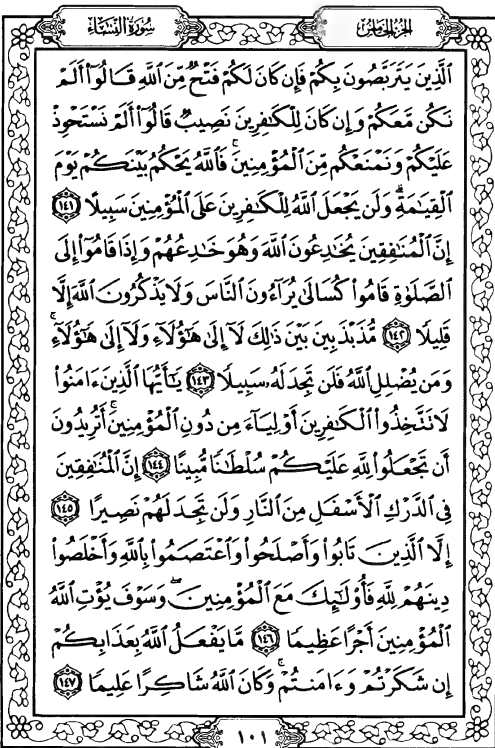 الجزء الخامس
سورة النساء
ٱلَّذِينَ يَتَرَبَّصُونَ بِكُمْ فَإِن كَانَ لَكُمْ فَتْحٌ مِّنَ ٱللَّهِ قَالُوٓا۟ أَلَمْ
نَكُن مَّعَكُمْ وَإِن كَانَ لِلْكَـٰفِرِينَ نَصِيبٌ قَالُوٓا۟ أَلَمْ نَسْتَحْوِذْ
عَلَيْكُمْ وَنَمْنَعْكُم مِّنَ ٱلْمُؤْمِنِينَ ۚ فَٱللَّهُ يَحْكُمُ بَيْنَكُمْ يَوْمَ
ٱلْقِيَـٰمَةِ ۗ وَلَن يَجْعَلَ ٱللَّهُ لِلْكَـٰفِرِينَ عَلَى ٱلْمُؤْمِنِينَ سَبِيلًا ١٤١
إِنَّ ٱلْمُنَـٰفِقِينَ يُخَـٰدِعُونَ ٱللَّهَ وَهُوَ خَـٰدِعُهُمْ وَإِذَا قَامُوٓا۟ إِلَى
ٱلصَّلَوٰةِ قَامُوا۟ كُسَالَىٰ يُرَآءُونَ ٱلنَّاسَ وَلَا يَذْكُرُونَ ٱللَّهَ إِلَّا
قَلِيلًا ١٤٢ مُّذَبْذَبِينَ بَيْنَ ذَٰلِكَ لَآ إِلَىٰ هَـٰٓؤُلَآءِ وَلَآ إِلَىٰ هَـٰٓؤُلَآءِ ۚ
وَمَن يُضْلِلِ ٱللَّهُ فَلَن تَجِدَ لَهُۥ سَبِيلًا ١٤٣ يَـٰٓأَيُّهَا ٱلَّذِينَ ءَامَنُوا۟
لَا تَتَّخِذُوا۟ ٱلْكَـٰفِرِينَ أَوْلِيَآءَ مِن دُونِ ٱلْمُؤْمِنِينَ ۚ أَتُرِيدُونَ
أَن تَجْعَلُوا۟ لِلَّهِ عَلَيْكُمْ سُلْطَـٰنًا مُّبِينًا ١٤٤ إِنَّ ٱلْمُنَـٰفِقِينَ
فِى ٱلدَّرْكِ ٱلْأَسْفَلِ مِنَ ٱلنَّارِ وَلَن تَجِدَ لَهُمْ نَصِيرًا ١٤٥
إِلَّا ٱلَّذِينَ تَابُوا۟ وَأَصْلَحُوا۟ وَٱعْتَصَمُوا۟ بِٱللَّهِ وَأَخْلَصُوا۟
دِينَهُمْ لِلَّهِ فَأُو۟لَـٰٓئِكَ مَعَ ٱلْمُؤْمِنِينَ ۖ وَسَوْفَ يُؤْتِ ٱللَّهُ
ٱلْمُؤْمِنِينَ أَجْرًا عَظِيمًا ١٤٦ مَّا يَفْعَلُ ٱللَّهُ بِعَذَابِكُمْ
إِن شَكَرْتُمْ وَءَامَنتُمْ ۚ وَكَانَ ٱللَّهُ شَاكِرًا عَلِيمًا ١٤٧
١٠١